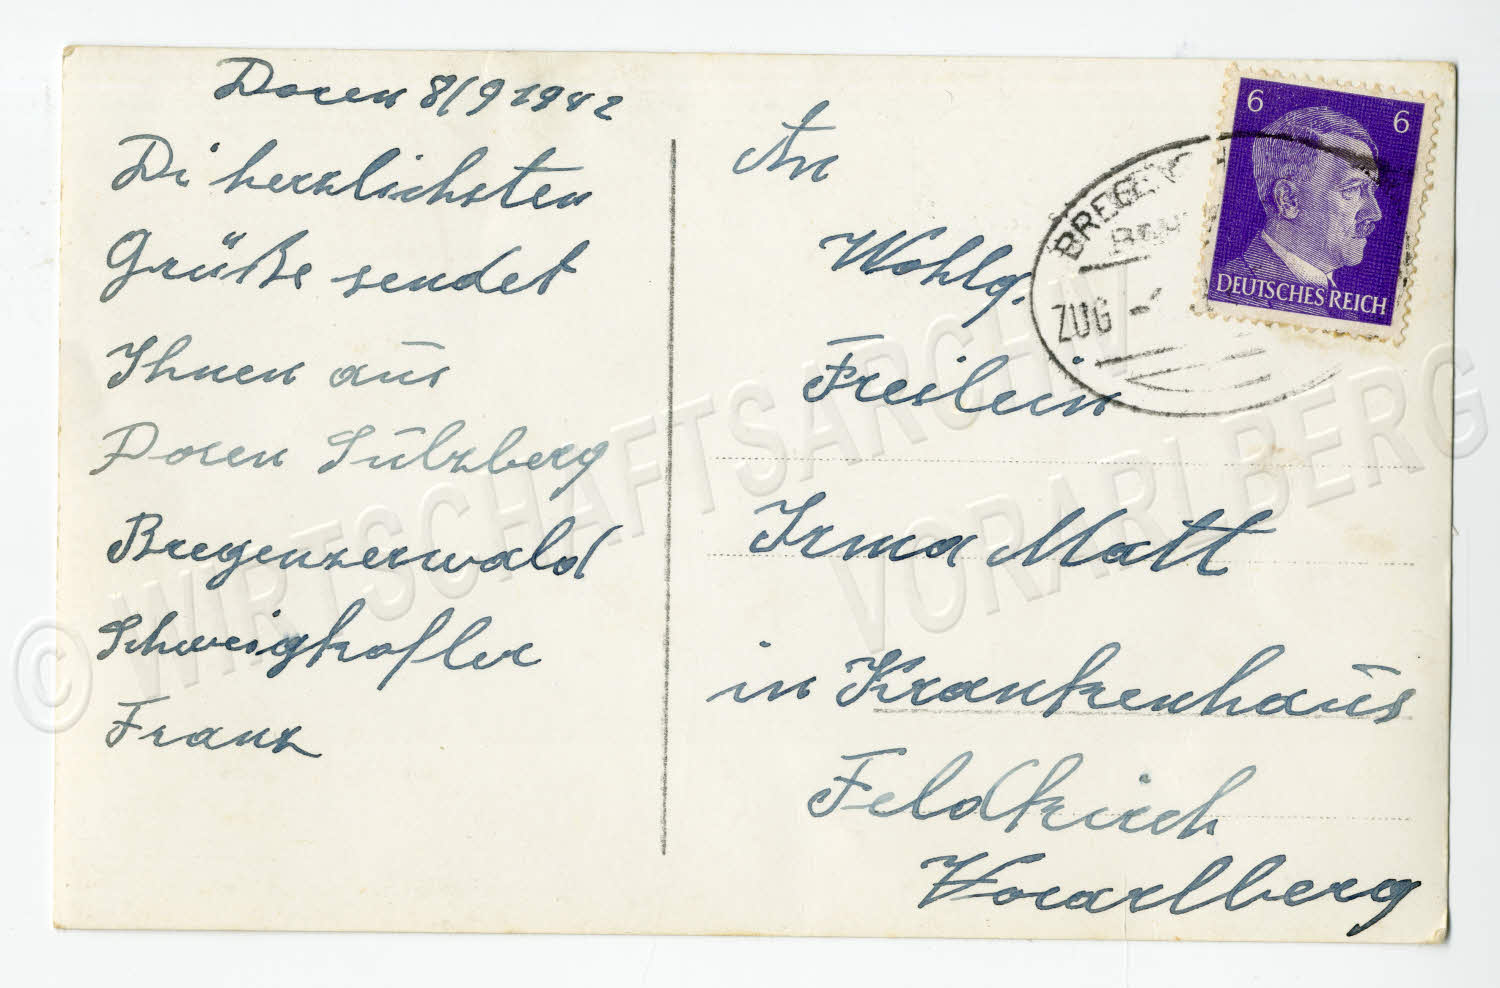 Doren 8/9 1942
Di herzlichsten
Grüße sendet
Ihnen aus
Doren Sulzberg
Bregenzerwald
Schweighofler
Franz
An
Wohlg.
Freilein
Irma Matt
in Krankenhaus
Feldkirch
Vorarlberg
6 6
DEUTSCHES REICH
BREGENZ
ZUG
© WIRTSCHAFTSARCHIV
VORARLBERG